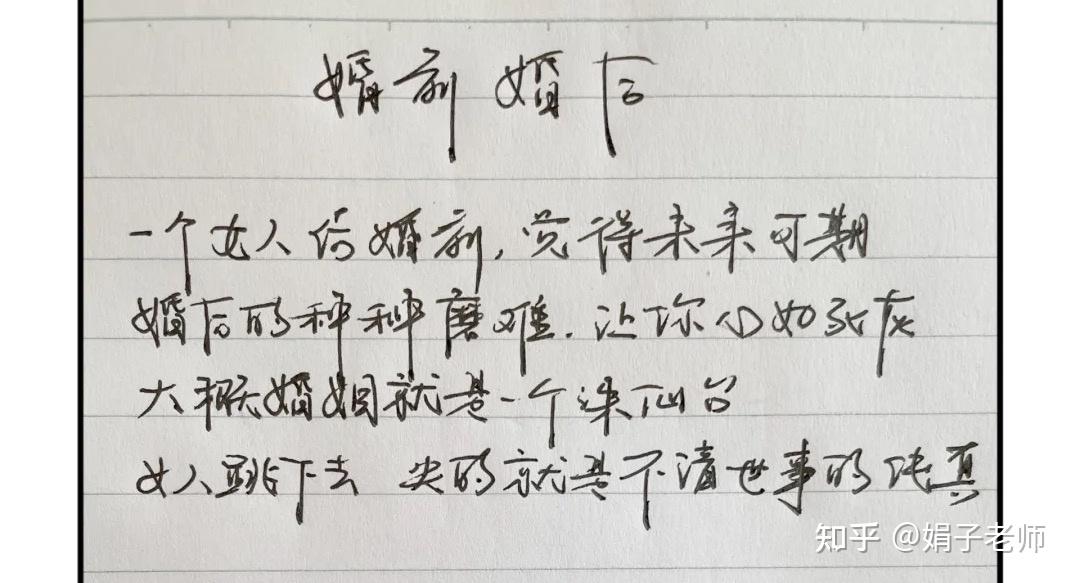 婚前婚后
一个女人结婚前,觉得未来可期
婚后的种种磨难.让你心如死灰
大概婚姻就是一个诛仙台
女人跳下去 失的就是不清世事的纯真
知乎 @娟子老师